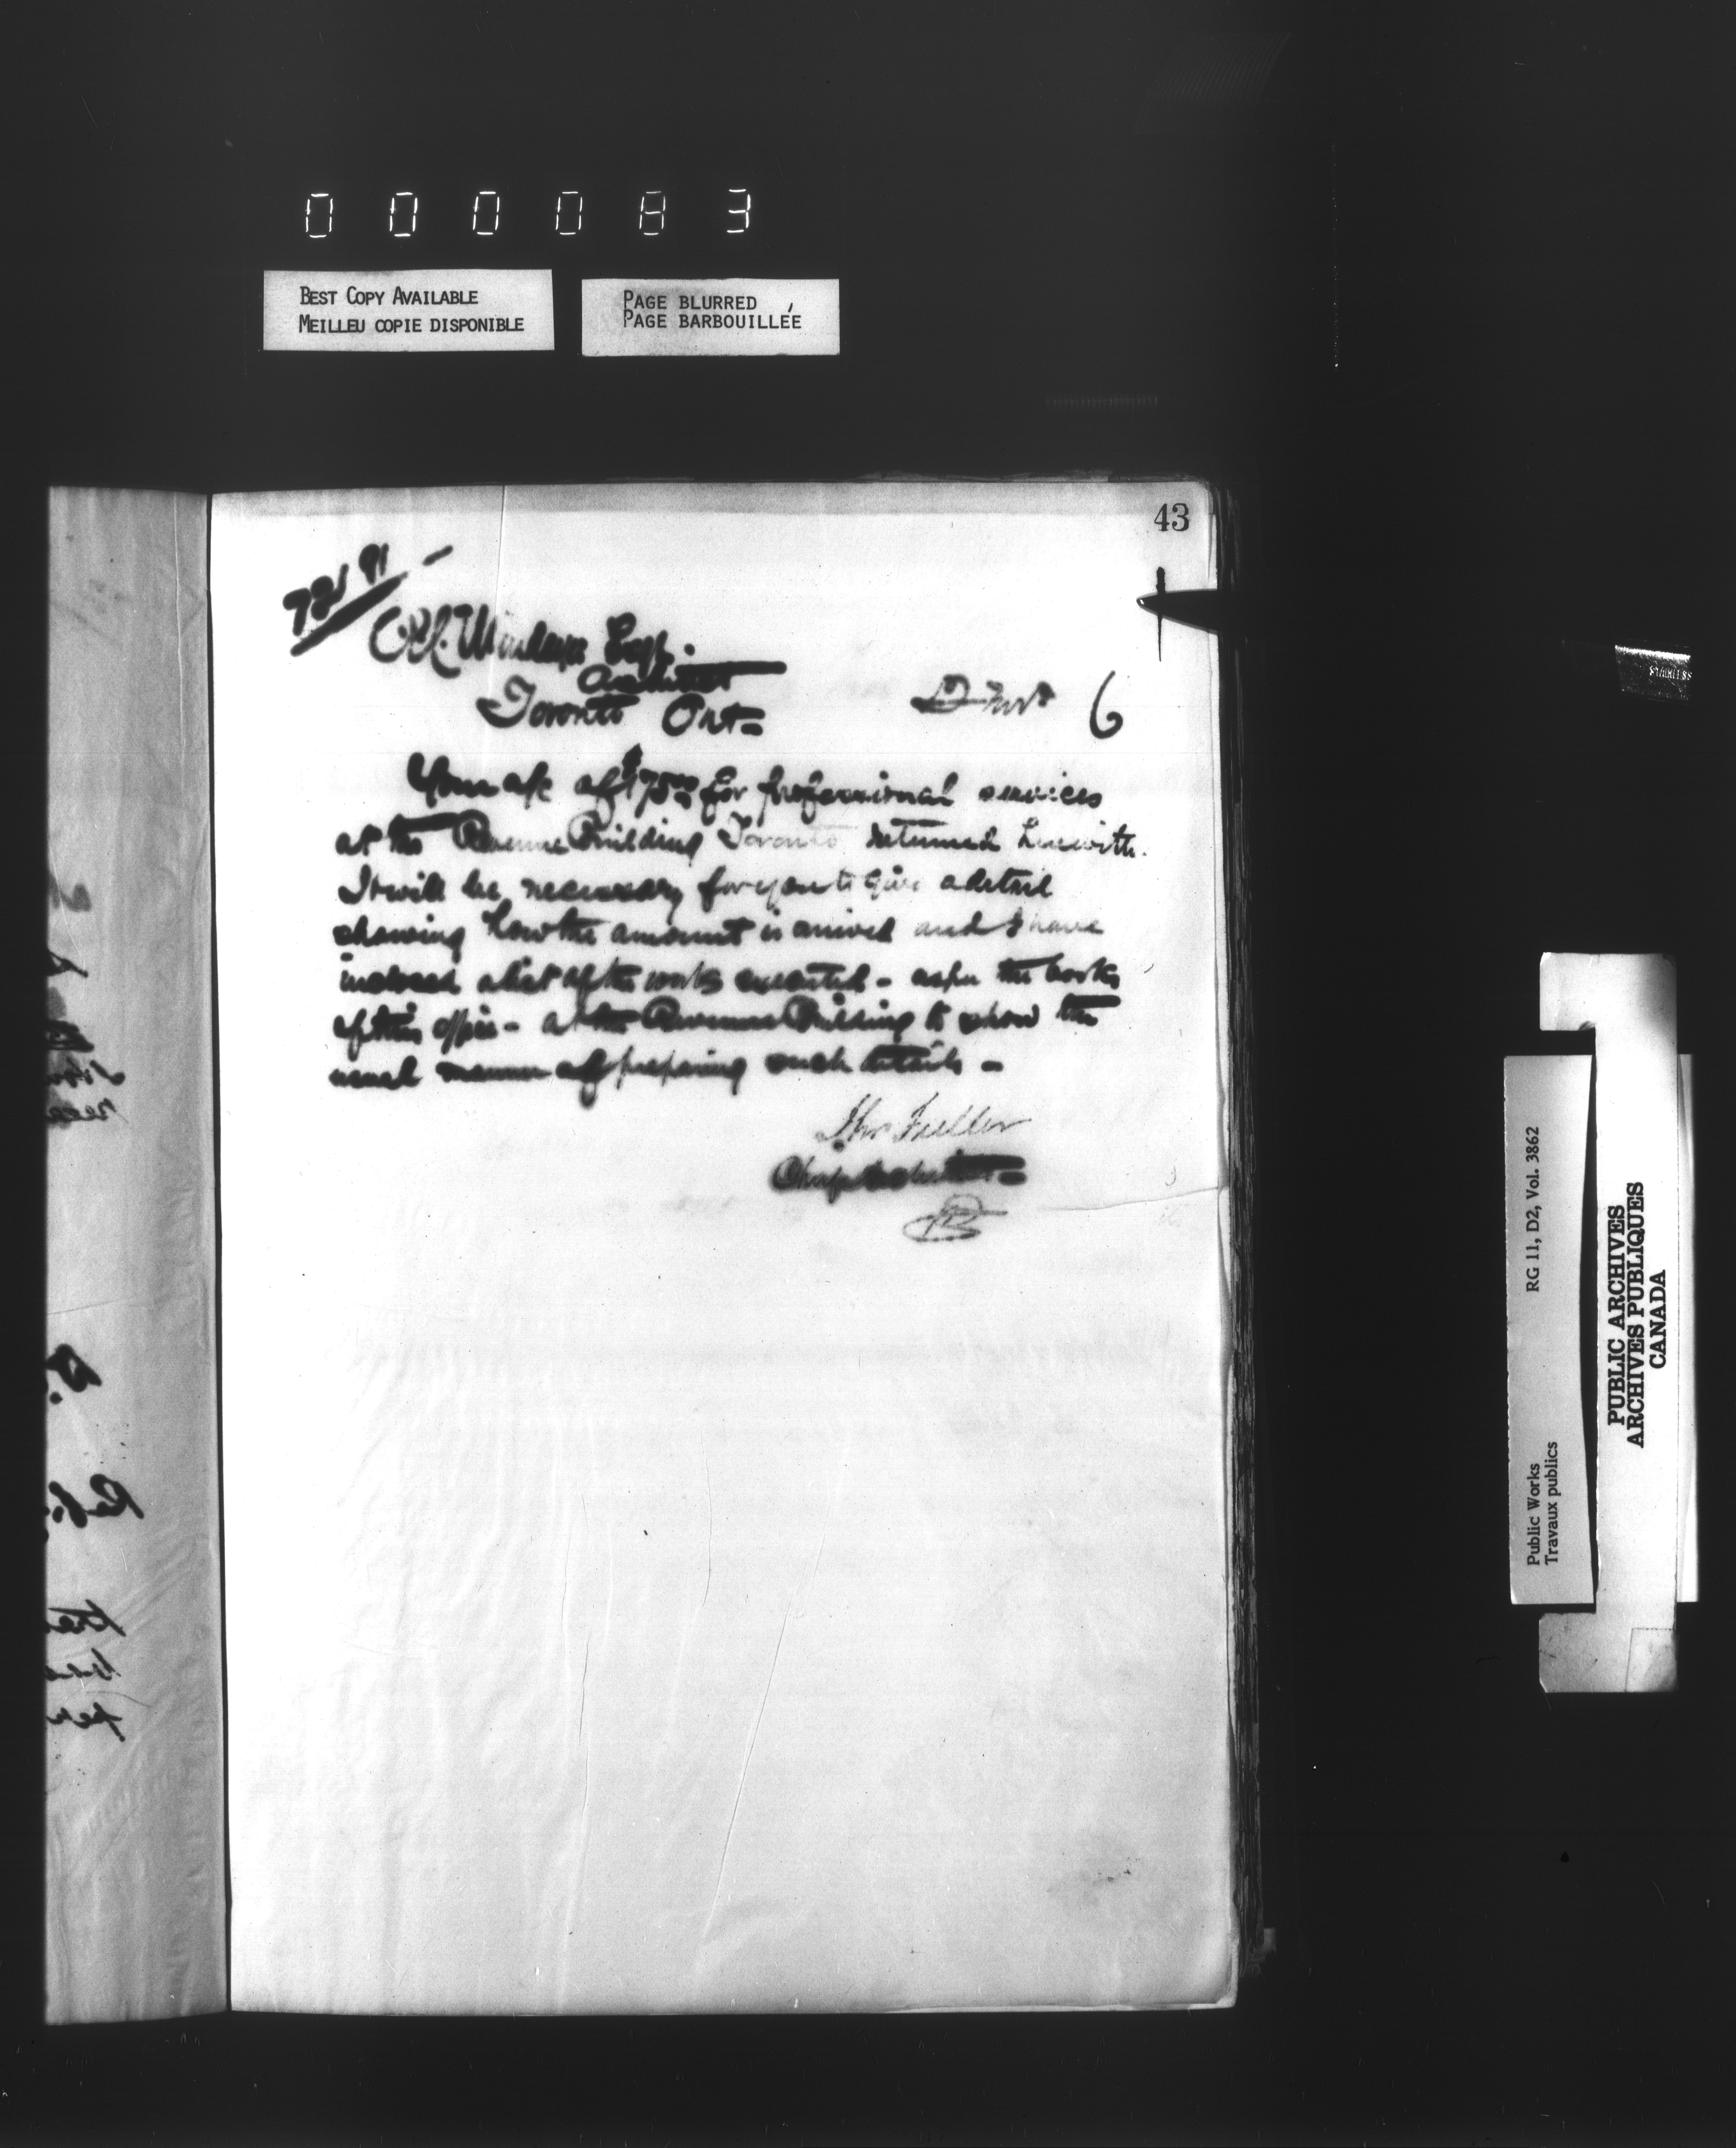 000083
BEST COPY AVAILABLE
MEILLEU COPIE DISPONIBLE
PAGE BLURRED
PAGE BARBOUILLÉE
43
Esq.
Architect
Toronto Ont
Nov 6
Your a/c of for professional services
at the Revenue Building Toronto returned herewith.
It will be necessary for you to give a detail
showing how the amount is arrived and I have
inclosed a list of the works executed - as per the books
of this office - at the Revenue Building to show the
usual manner of preparing such details -
Thos Fuller
Chief Architect
Public Works
Travaux publics
RG 11, D2, Vol. 3862
PUBLIC ARCHIVES
ARCHIVES PUBLIQUES
CANADA